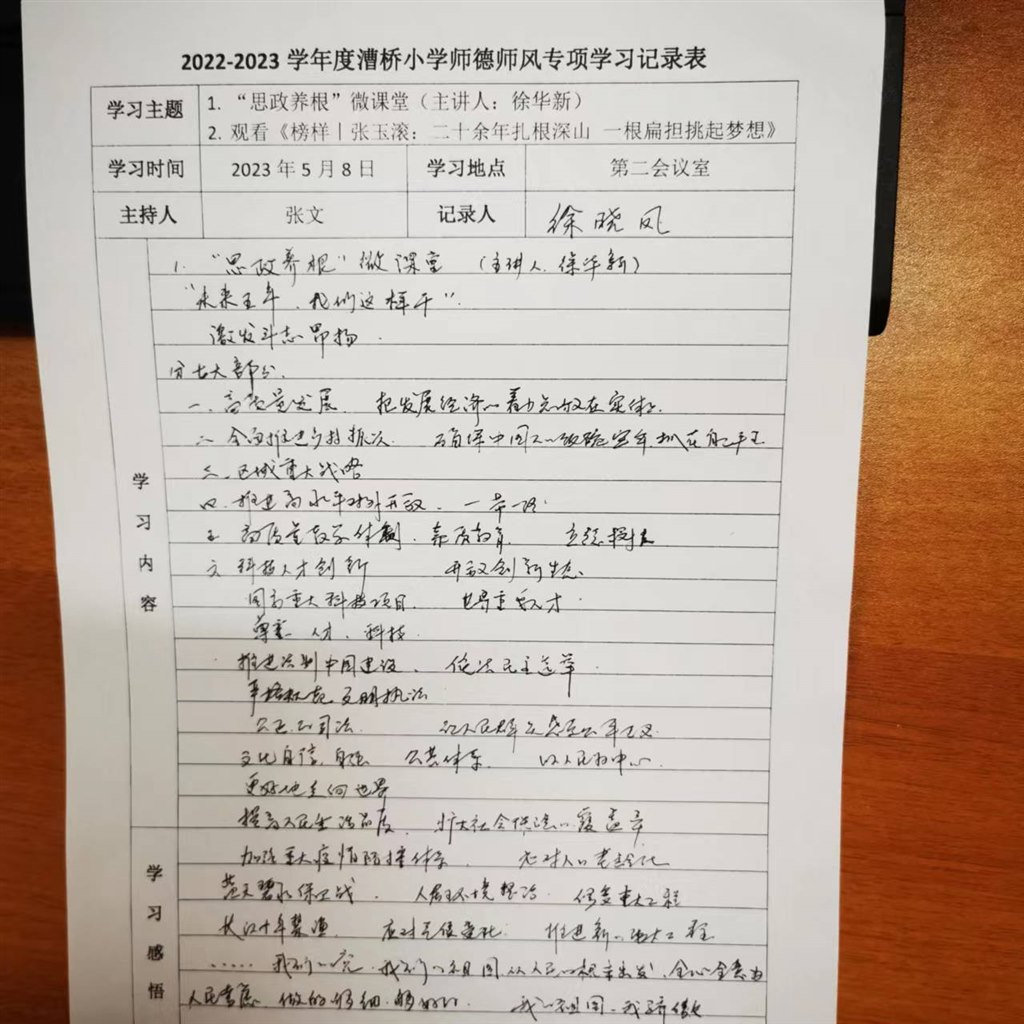 2022-2023 学年度漕桥小学师德师风专项学习记录表
学习主题
1. “思政养根”微课堂（主讲人：徐华新）
2. 观看《榜样丨张玉滚：二十余年扎根深山 一根扁担挑起梦想》
学习时间 2023 年 5 月 8 日 学习地点 第二会议室
主持人 张文 记录人 徐晓凤
学习内容
1. “思政养根”微课堂 （主讲人. 徐华新）
“未来五年, 我们这样干”.
激发斗志昂扬.
分七大部分.
一. 高质量发展. 把发展经济的着力点放在实体.
二. 全面推进乡村振兴. 确保中国人的饭碗牢牢抓在自己手里
三. 区域重大战略
四. 推进高水平对外开放. 一带一路.
五. 高质量教育体制. 素质教育. 立德树人
六. 科技人才创新 开放创新生态.
国家重大科技项目. 世界重要人才.
尊重 人才. 科技.
推进法制中国建设. 依法民主选举.
严格规范文明执法
公正的司法.
文化自信. 自强 公共体系. 以人民为中心.
更好地走向世界
学习感悟
提高人民生活品质. 扩大社会保险的覆盖率
加强重大疫情防控体系. 应对人口老龄化
蓝天碧水保卫战. 人居环境整治. 修复重大工程
长江十年禁渔. 应对气候变化. 推进新的
...... 我们的党. 我们的祖国从人民的根本出发, 全心全意为
人民考虑. 做的够细. 够好的. 我的祖国. 我骄傲